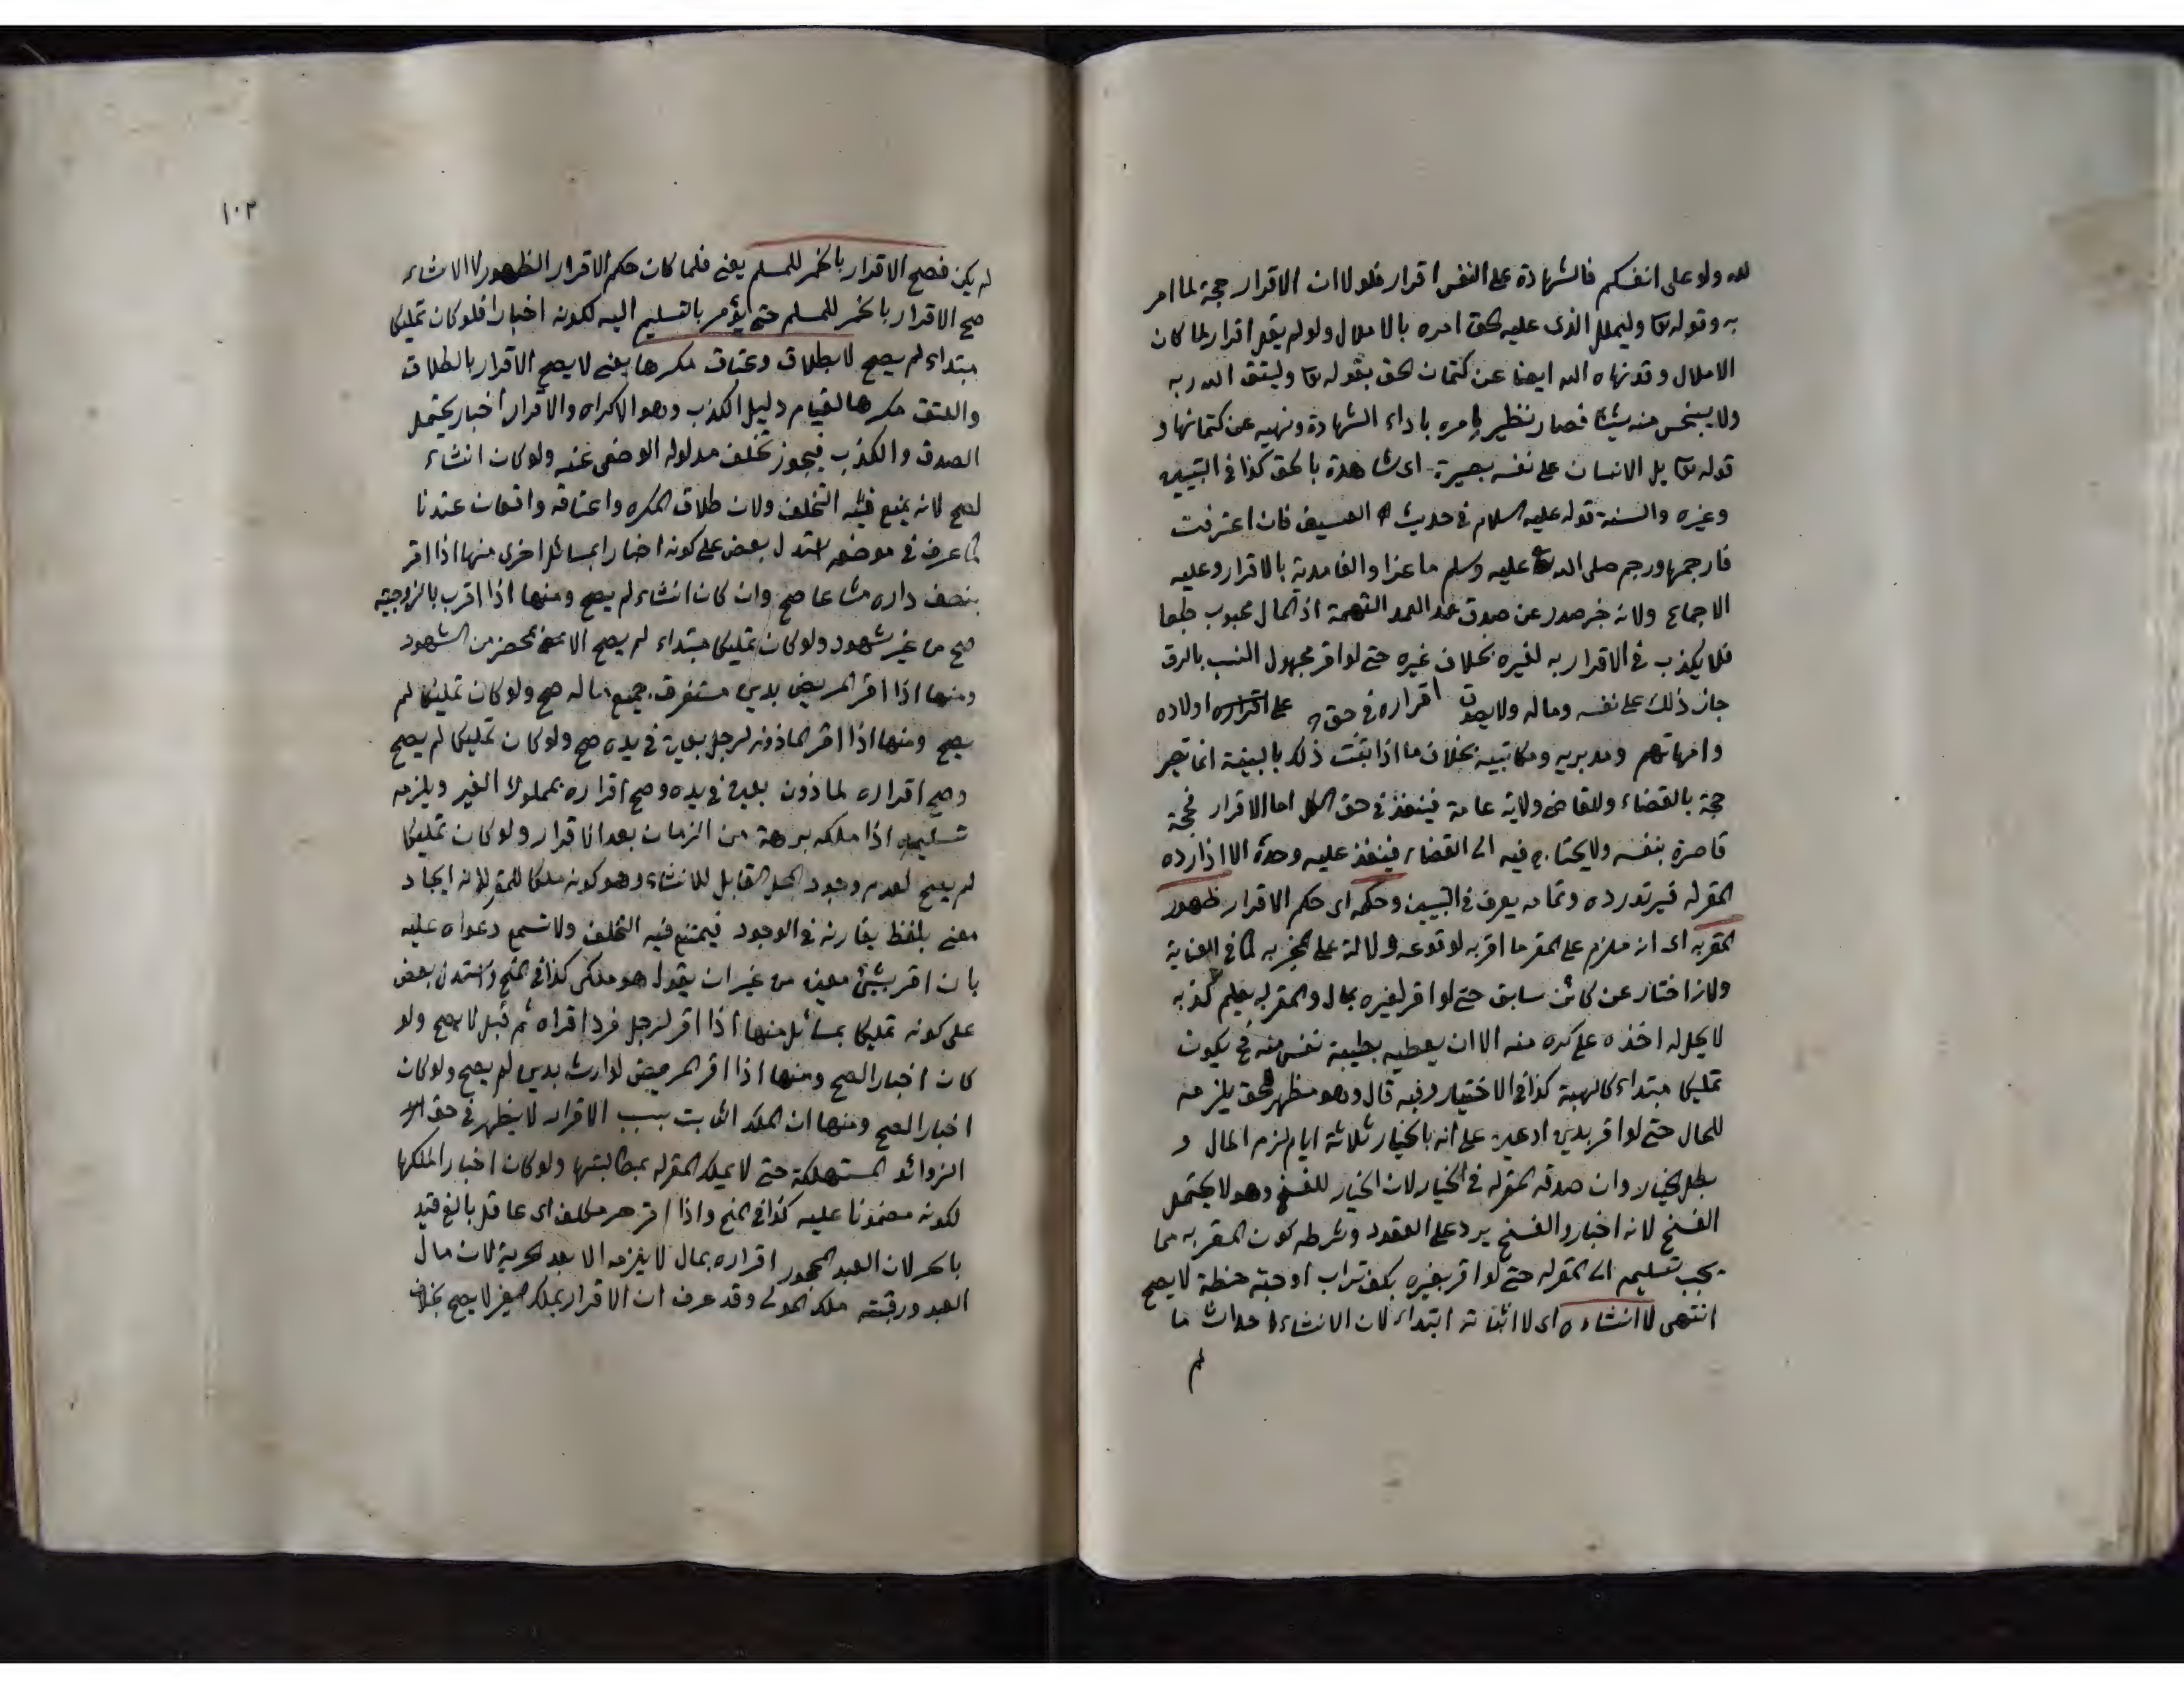 لله ولو على انفسكم فالشهادة على النفس اقرار فلولا ان الاقرار حجة لما امر
به وقوله تعا وليملل الذى عليه الحق امره بالاملال ولو لم يقبل اقرار لما كان
الاملال وقد نهاه الله ايضا عن كتمان الحق بقوله تعا وليتق الله ربه
ولا يبخس منه شيئا فصار نظير امره باداء الشهادة ونهيه عن كتمانها و
قوله تعا بل الانسان على نفسه بصيرة اى شاهدة بالحق كذا فى التبيين
وغيره والسنة قوله عليه السلام فى حديث العسيف فان اعترفت
فارجمها ورجم صلى الله عليه وسلم ماعزا والغامدية بالاقرار وعليه
الاجماع ولانه خبر صدر عن صدق لعدم التهمة اذ المال محبوب طبعا
فلا يكذب فى الاقرار به لغيره بخلاف غيره حتى لو اقر مجهول النسب بالرق
جاز ذلك على نفسه وماله ولا يصدق اقراره فى حق على اقراره اولاده
وامهاتهم ومدبريه ومكاتبيه بخلاف ما اذا ثبت ذلك بالبينة انما تصير
حجة بالقضاء وللقاضى ولاية عامة فينفذ فى حق الكل اما الاقرار فحجة
قاصرة بنفسه ولا يحتاج فيه الى القضاء فينفذ عليه وحده الا اذا رده
المقر له فيرتد رده وتمامه يعرف فى التبيين وحكمه اى حكم الاقرار ظهور
المقر به اى انه ملزم على المقر ما اقر به لوقوعه دلالة على المخبر به كما فى العناية
ولانه اختار عن كائن سابق حتى لو اقر لغيره بمال والمقر له يعلم كذبه
لا يحل له اخذه على كره منه الا ان يعطيه بطيبة نفس منه فح يكون
تمليكا مبتداء كالهبة كذا فى الاختيار وفيه قال وهو مظهر لحق يلزمه
للحال حتى لو اقر بدين او عين على انه بالخيار ثلاثة ايام لزم المال و
بطل الخيار وان صدقه المقر له فى الخيار لان الخيار للفسخ وهو لا يحتمل
الفسخ لانه اخبار والفسخ يرد على العقود وشرطه كون المقر به مما
يجب تسليمه الى المقر له حتى لو اقر بغيره بكف تراب او حبة حنطة لا يصح
انتهى لا انشاءه اى لا اثباته ابتداء لان الانشاء احداث ما
لم
١٠٢
لم يكن فصح الاقرار بالخمر للمسلم يعنى فلما كان حكم الاقرار الظهور لا الانشاء
صح الاقرار بالخمر للمسلم حتى يؤمر بالتسليم اليه لكونه اخبارا فلو كان تمليكا
مبتداء لم يصح لا بطلاق وعتاق مكرها يعنى لا يصح الاقرار بالطلاق
والعتق مكرها لقيام دليل الكذب وهو الاكراه والاقرار اخبار يحتمل
الصدق والكذب فيجوز تخلف مدلوله الوضعى عنه ولو كان انشاء
لصح لانه يمتنع فيه التخلف ولان طلاق المكره واعتاقه واقعان عندنا
كما عرف فى موضعه استدل بعض على كونه اخبارا بمسائل اخرى منها اذا اقر
بنصف داره مشاعا صح وان كان انشاء لم يصح ومنها اذا اقرت بالزوجية
صح من غير شهود ولو كان تمليكا مبتداء لم يصح الا بمحضر من الشهود
ومنها اذا اقر المريض بدين مستغرق جميع ماله صح ولو كان تمليكا لم
يصح ومنها اذا اقر الماذون لرجل بعين فى يده صح ولو كان تمليكا لم يصح
وصح اقراره لماذون بعين فى يده وصح اقراره بمملوك الغير ويلزمه
تسليمه اذا ملكه برهة من الزمان بعد الاقرار ولو كان تمليكا
لم يصح لعدم وجود المحل القابل للانشاء وهو كونه ملكا للمقر لانه ايجاد
معنى بلفظ يقارنه فى الوجود فيمتنع فيه التخلف ولا تسمع دعواه عليه
بان اقر بشئ معين من غير ان يقول هو ملكى كذا فى المنح واستدل بعض
على كونه تمليكا بمسائل منها اذا اقر لرجل فرد اقراه ثم قبل لا يصح ولو
كان اخبارا لصح ومنها اذا اقر المريض لوارث بدين لم يصح ولو كان
اخبارا لصح ومنها ان الملك الثابت بسبب الاقرار لا يظهر فى حق
الزوائد المستهلكة حتى لا يملك المقر له بمطالبتها ولو كان اخبارا لملكها
لكونه مضمونا عليه كذا فى المنح واذا اقر حر مكلف اى عاقل بالغ قيد
بالحر لان العبد المحجور اقراره بمال لا يلزمه الا بعد الحرية لان مال
العبد ورقبته ملك المولى وقد عرف ان الاقرار بملك الغير لا يصح بخلاف